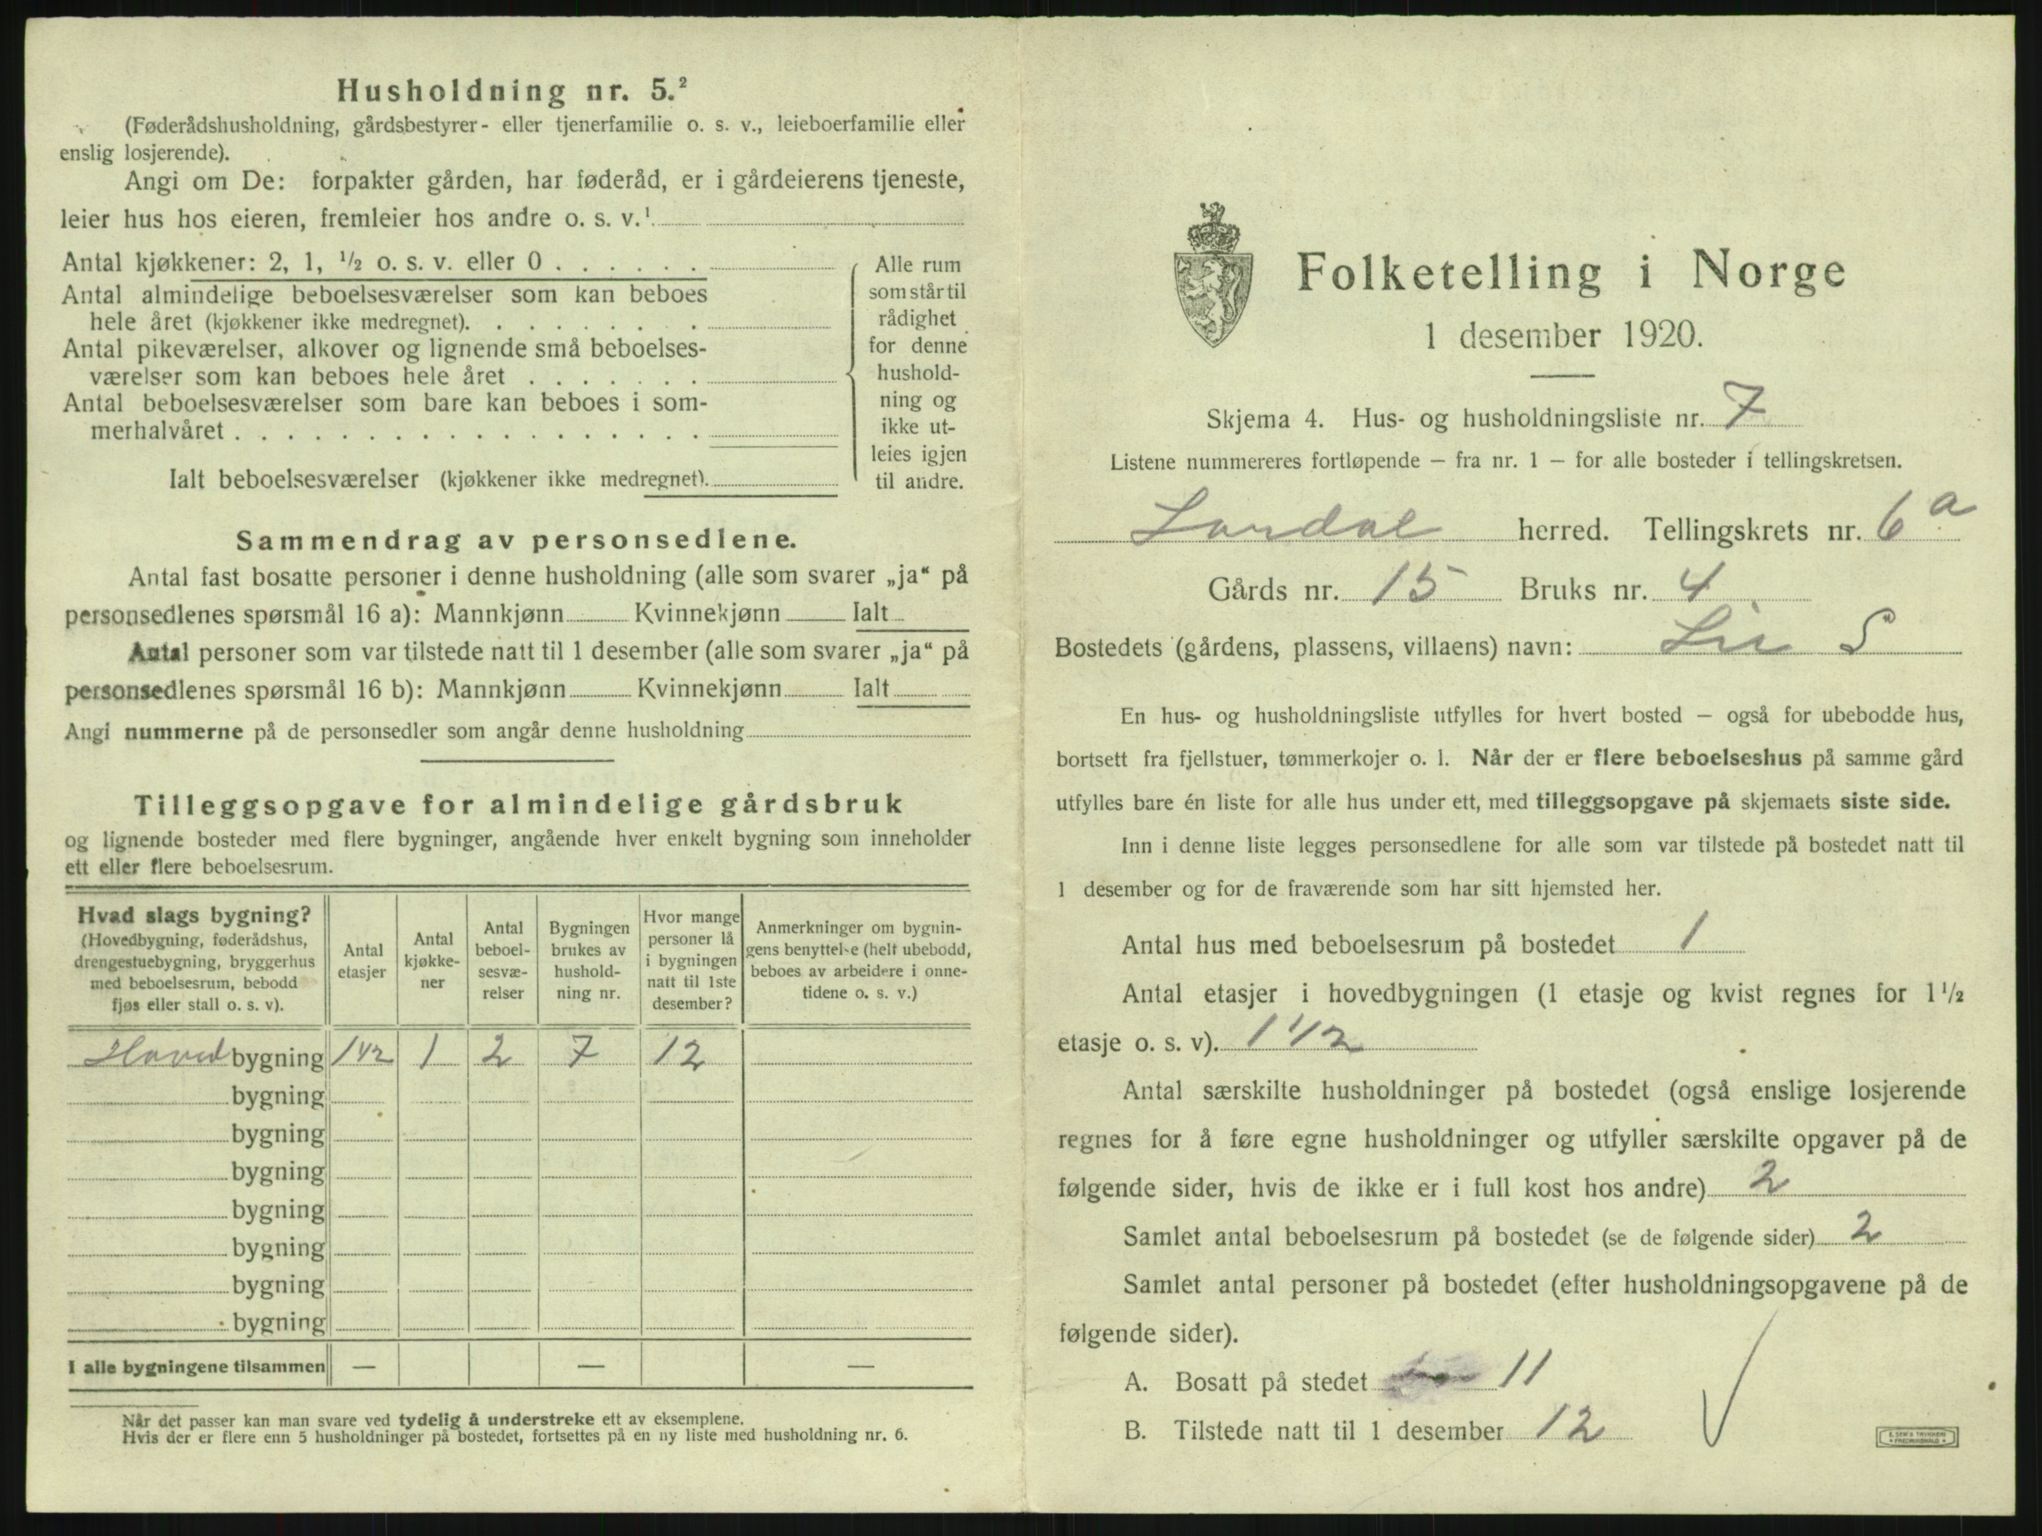 Husholdning nr. 5.²
(Føderådshusholdning, gårdsbestyrer- eller tjenerfamilie o. s. v., leieboerfamilie eller
enslig losjerende).
Angi om De: forpakter gården, har føderåd, er i gårdeierens tjeneste,
leier hus hos eieren, fremleier hos andre o. s. v.¹
Antal kjøkkener: 2, 1, ½ o. s. v. eller 0 . . . . . .
Antal almindelige beboelsesværelser som kan beboes
hele året (kjøkkener ikke medregnet). . . . . . . . .
Antal pikeværelser, alkover og lignende små beboelses-
værelser som kan beboes hele året . . . . . . .
Antal beboelsesværelser som bare kan beboes i som-
merhalvåret . . . . . . . . . . . . . . . . . .
Ialt beboelsesværelser (kjøkkener ikke medregnet).
Alle rum
som står til
rådighet
for denne
hushold-
ning og
ikke ut-
leies igjen
til andre.
Sammendrag av personsedlene.
Antal fast bosatte personer i denne husholdning (alle som svarer „ja“ på
personsedlenes spørsmål 16 a): Mannkjønn Kvinnekjønn Ialt
Antal personer som var tilstede natt til 1 desember (alle som svarer „ja“ på
personsedlenes spørsmål 16 b): Mannkjønn Kvinnekjønn Ialt
Angi nummerne på de personsedler som angår denne husholdning
Tilleggsopgave for almindelige gårdsbruk
og lignende bosteder med flere bygninger, angående hver enkelt bygning som inneholder
ett eller flere beboelsesrum.
Hvad slags bygning?
(Hovedbygning, føderådshus,
drengestuebygning, bryggerhus
med beboelsesrum, bebodd
fjøs eller stall o. s. v).
Antal
etasjer
Antal
kjøkke-
ner
Antal
beboel-
sesvæ-
relser
Bygningen
brukes av
hushold-
ning nr.
Hvor mange
personer lå
i bygningen
natt til 1ste
desember?
Anmerkninger om bygnin-
gens benyttelse (helt ubebodd,
beboes av arbeidere i onne-
tidene o. s. v.)
Hovedbygning 1 1/2 1 2 7 12
bygning
bygning
bygning
bygning
bygning
bygning
bygning
I alle bygningene tilsammen — — —
Når det passer kan man svare ved tydelig å understreke ett av eksemplene.
Hvis der er flere enn 5 husholdninger på bostedet, fortsettes på en ny liste med husholdning nr. 6.
Folketelling i Norge
1 desember 1920.
Skjema 4. Hus- og husholdningsliste nr. 7
Listene nummereres fortløpende – fra nr. 1 – for alle bosteder i tellingskretsen.
Lardal herred. Tellingskrets nr. 6 a
Gårds nr. 15 Bruks nr. 4
Bostedets (gårdens, plassens, villaens) navn: Lie S
En hus- og husholdningsliste utfylles for hvert bosted – også for ubebodde hus,
bortsett fra fjellstuer, tømmerkojer o. l. Når der er flere beboelseshus på samme gård
utfylles bare én liste for alle hus under ett, med tilleggsopgave på skjemaets siste side.
Inn i denne liste legges personsedlene for alle som var tilstede på bostedet natt til
1 desember og for de fraværende som har sitt hjemsted her.
Antal hus med beboelsesrum på bostedet 1
Antal etasjer i hovedbygningen (1 etasje og kvist regnes for 1½
etasje o. s. v). 1 1/2
Antal særskilte husholdninger på bostedet (også enslige losjerende
regnes for å føre egne husholdninger og utfyller særskilte opgaver på de
følgende sider, hvis de ikke er i full kost hos andre) 2
Samlet antal beboelsesrum på bostedet (se de følgende sider) 2
Samlet antal personer på bostedet (efter husholdningsopgavene på de
følgende sider).
A. Bosatt på stedet 11
B. Tilstede natt til 1 desember 12